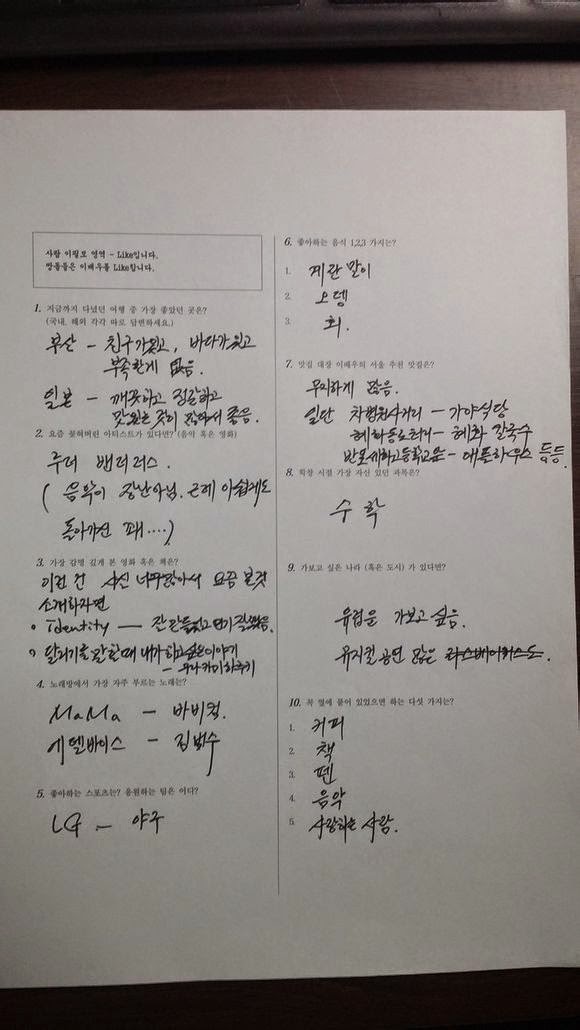 사람 이필모 영역 - Like입니다.
짱돌들은 이배우를 Like합니다.
1. 지금까지 다녔던 여행 중 가장 좋았던 곳은?
(국내, 해외 각각 따로 답변하세요.)
부산 - 친구가있고, 바다가있고
부족한게 없음.
일본 - 깨끗하고 정갈하고
맛있는 것이 많아서 좋음.
2. 요즘 꽂혀버린 아티스트가 있다면? (음악 혹은 영화)
루더 밴더러스.
( 음악이 장난아님. 근래 아쉽게도
돌아가신 패....)
3. 가장 감명 깊게 본 영화 혹은 책은?
이런 건 사실 너무많아서 요즘 본것
소개하자면
Identity — 잘만들었고 연기잘했음.
달리기를 말할때 내가하고싶은이야기
- 무라카미하루키
4. 노래방에서 가장 자주 부르는 노래는?
MaMa - 바비킴.
에델바이스 - 김범수
5. 좋아하는 스포츠는? 응원하는 팀은 어디?
LG - 야구
6. 좋아하는 음식 1,2,3 가지는?
1. 계란 말이
2. 오뎅
3. 회.
7. 맛집 대장 이배우의 서울 추천 맛집은?
무지하게 많음.
일단 차병원사거리 - 가야식당
혜화동로터리 - 혜화 칼국수
반포세화고등학교앞 - 애플하우스 등등.
8. 학창 시절 가장 자신 있던 과목은?
수학
9. 가보고 싶은 나라 (혹은 도시) 가 있다면?
유럽은 가보고 싶음.
뮤지컬공연 많은 라스베이거스도.
10. 꼭 옆에 붙어 있었으면 하는 다섯 가지는?
1. 커피
2. 책
3. 펜
4. 음악
5. 사랑하는 사람.